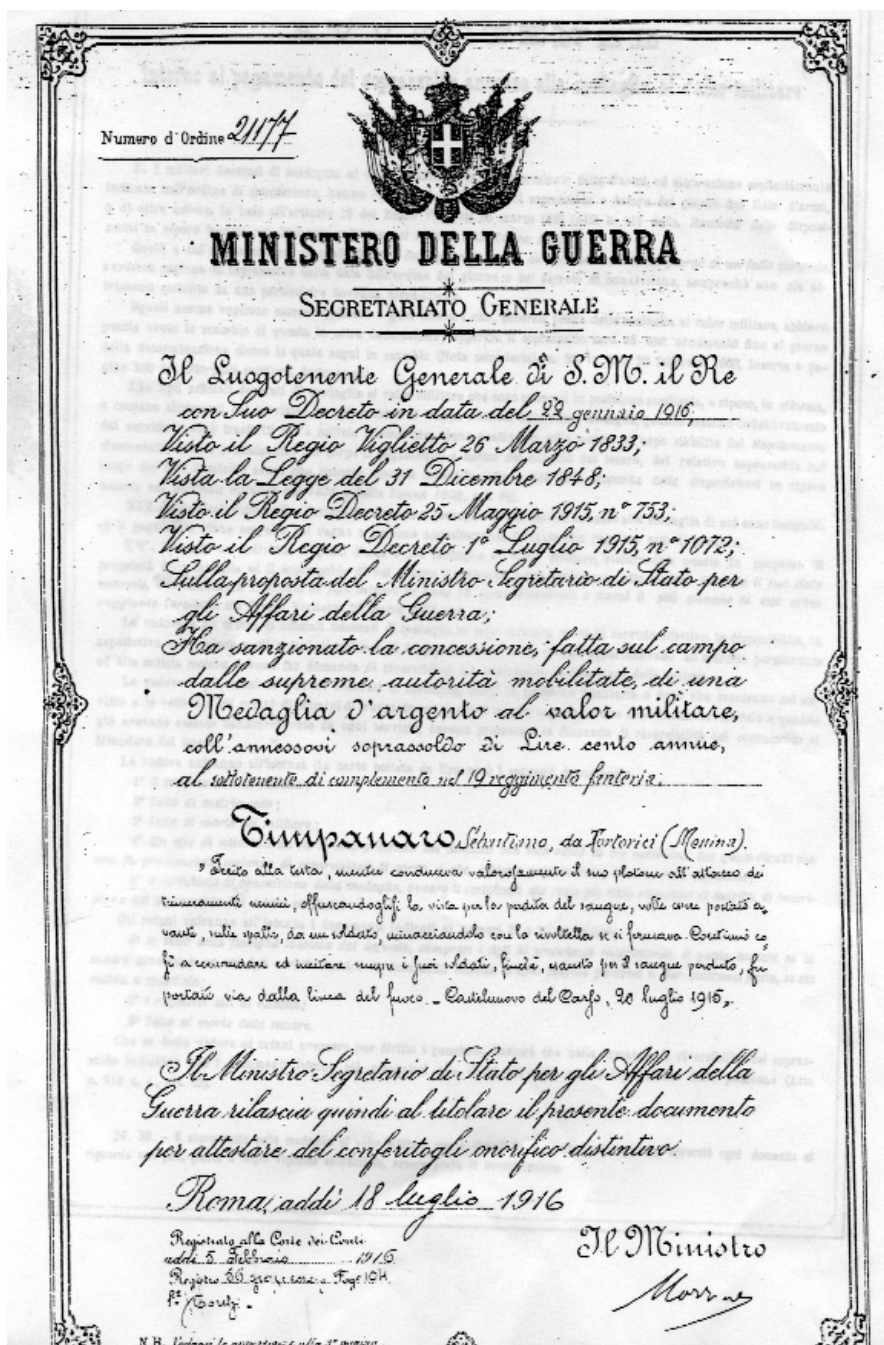 Numero d'Ordine 21177
MINISTERO DELLA GUERRA
SEGRETARIATO GENERALE
Il Luogotenente Generale di S. M. il Re
con Suo Decreto in data del 22 gennaio 1916,
Visto il Regio Viglietto 26 Marzo 1833;
Vista la Legge del 31 Dicembre 1848;
Visto il Regio Decreto 25 Maggio 1915, n° 753;
Visto il Regio Decreto 1° Luglio 1915, n° 1072;
Sulla proposta del Ministro Segretario di Stato per
gli Affari della Guerra;
Ha sanzionato la concessione, fatta sul campo
dalle supreme autorità mobilitate, di una
Medaglia d'argento al valor militare,
coll'annessovi soprassoldo di Lire cento annue,
al sottotenente di complemento nel 19 reggimento fanteria:
Timpanaro Sebastiano, da Tortorici (Messina).
" Ferito alla testa, mentre conduceva valorosamente il suo plotone all'attacco dei
trinceramenti nemici, offuscandoglisi la vista per la perdita del sangue, volle essere portato a-
vanti, sulle spalle, da un soldato, minacciandolo con la rivoltella se si fermava. Continuò co-
sì a comandare ed incitare sempre i suoi soldati, finchè, esausto pel sangue perduto, fu
portato via dalla linea del fuoco. - Castelnuovo del Carso, 20 luglio 1915 „.
Il Ministro Segretario di Stato per gli Affari della
Guerra rilascia quindi al titolare il presente documento
per attestare del conferitogli onorifico distintivo.
Roma, addì 18 luglio 1916
Registrato alla Corte dei Conti
addì 5 Febbraio 1916
Registro 56 Foglio 194
Il Ministro
N. B.